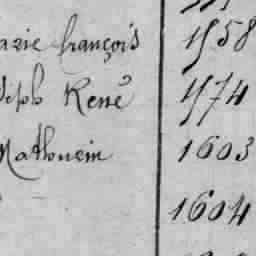 arie françois 1558
seph René 1574
Mathurin 1603
1604